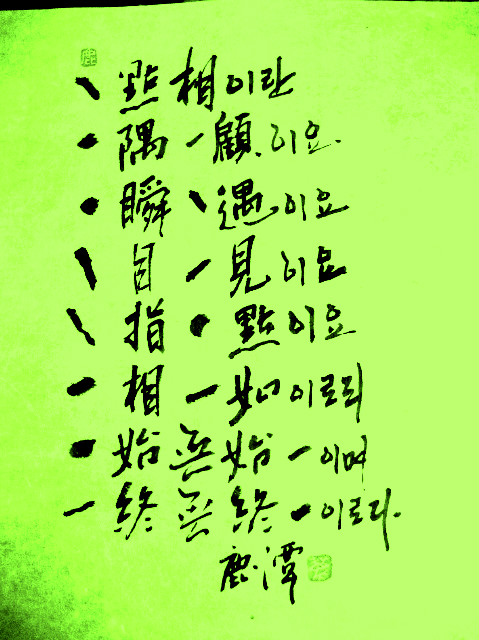 丶 點相이란
一隅一顧이요
一瞬一遇이요
一目一見이요
一指一點이요
一相一如이로되
一始無始一이며
一終無終一이로다.
鹿潭